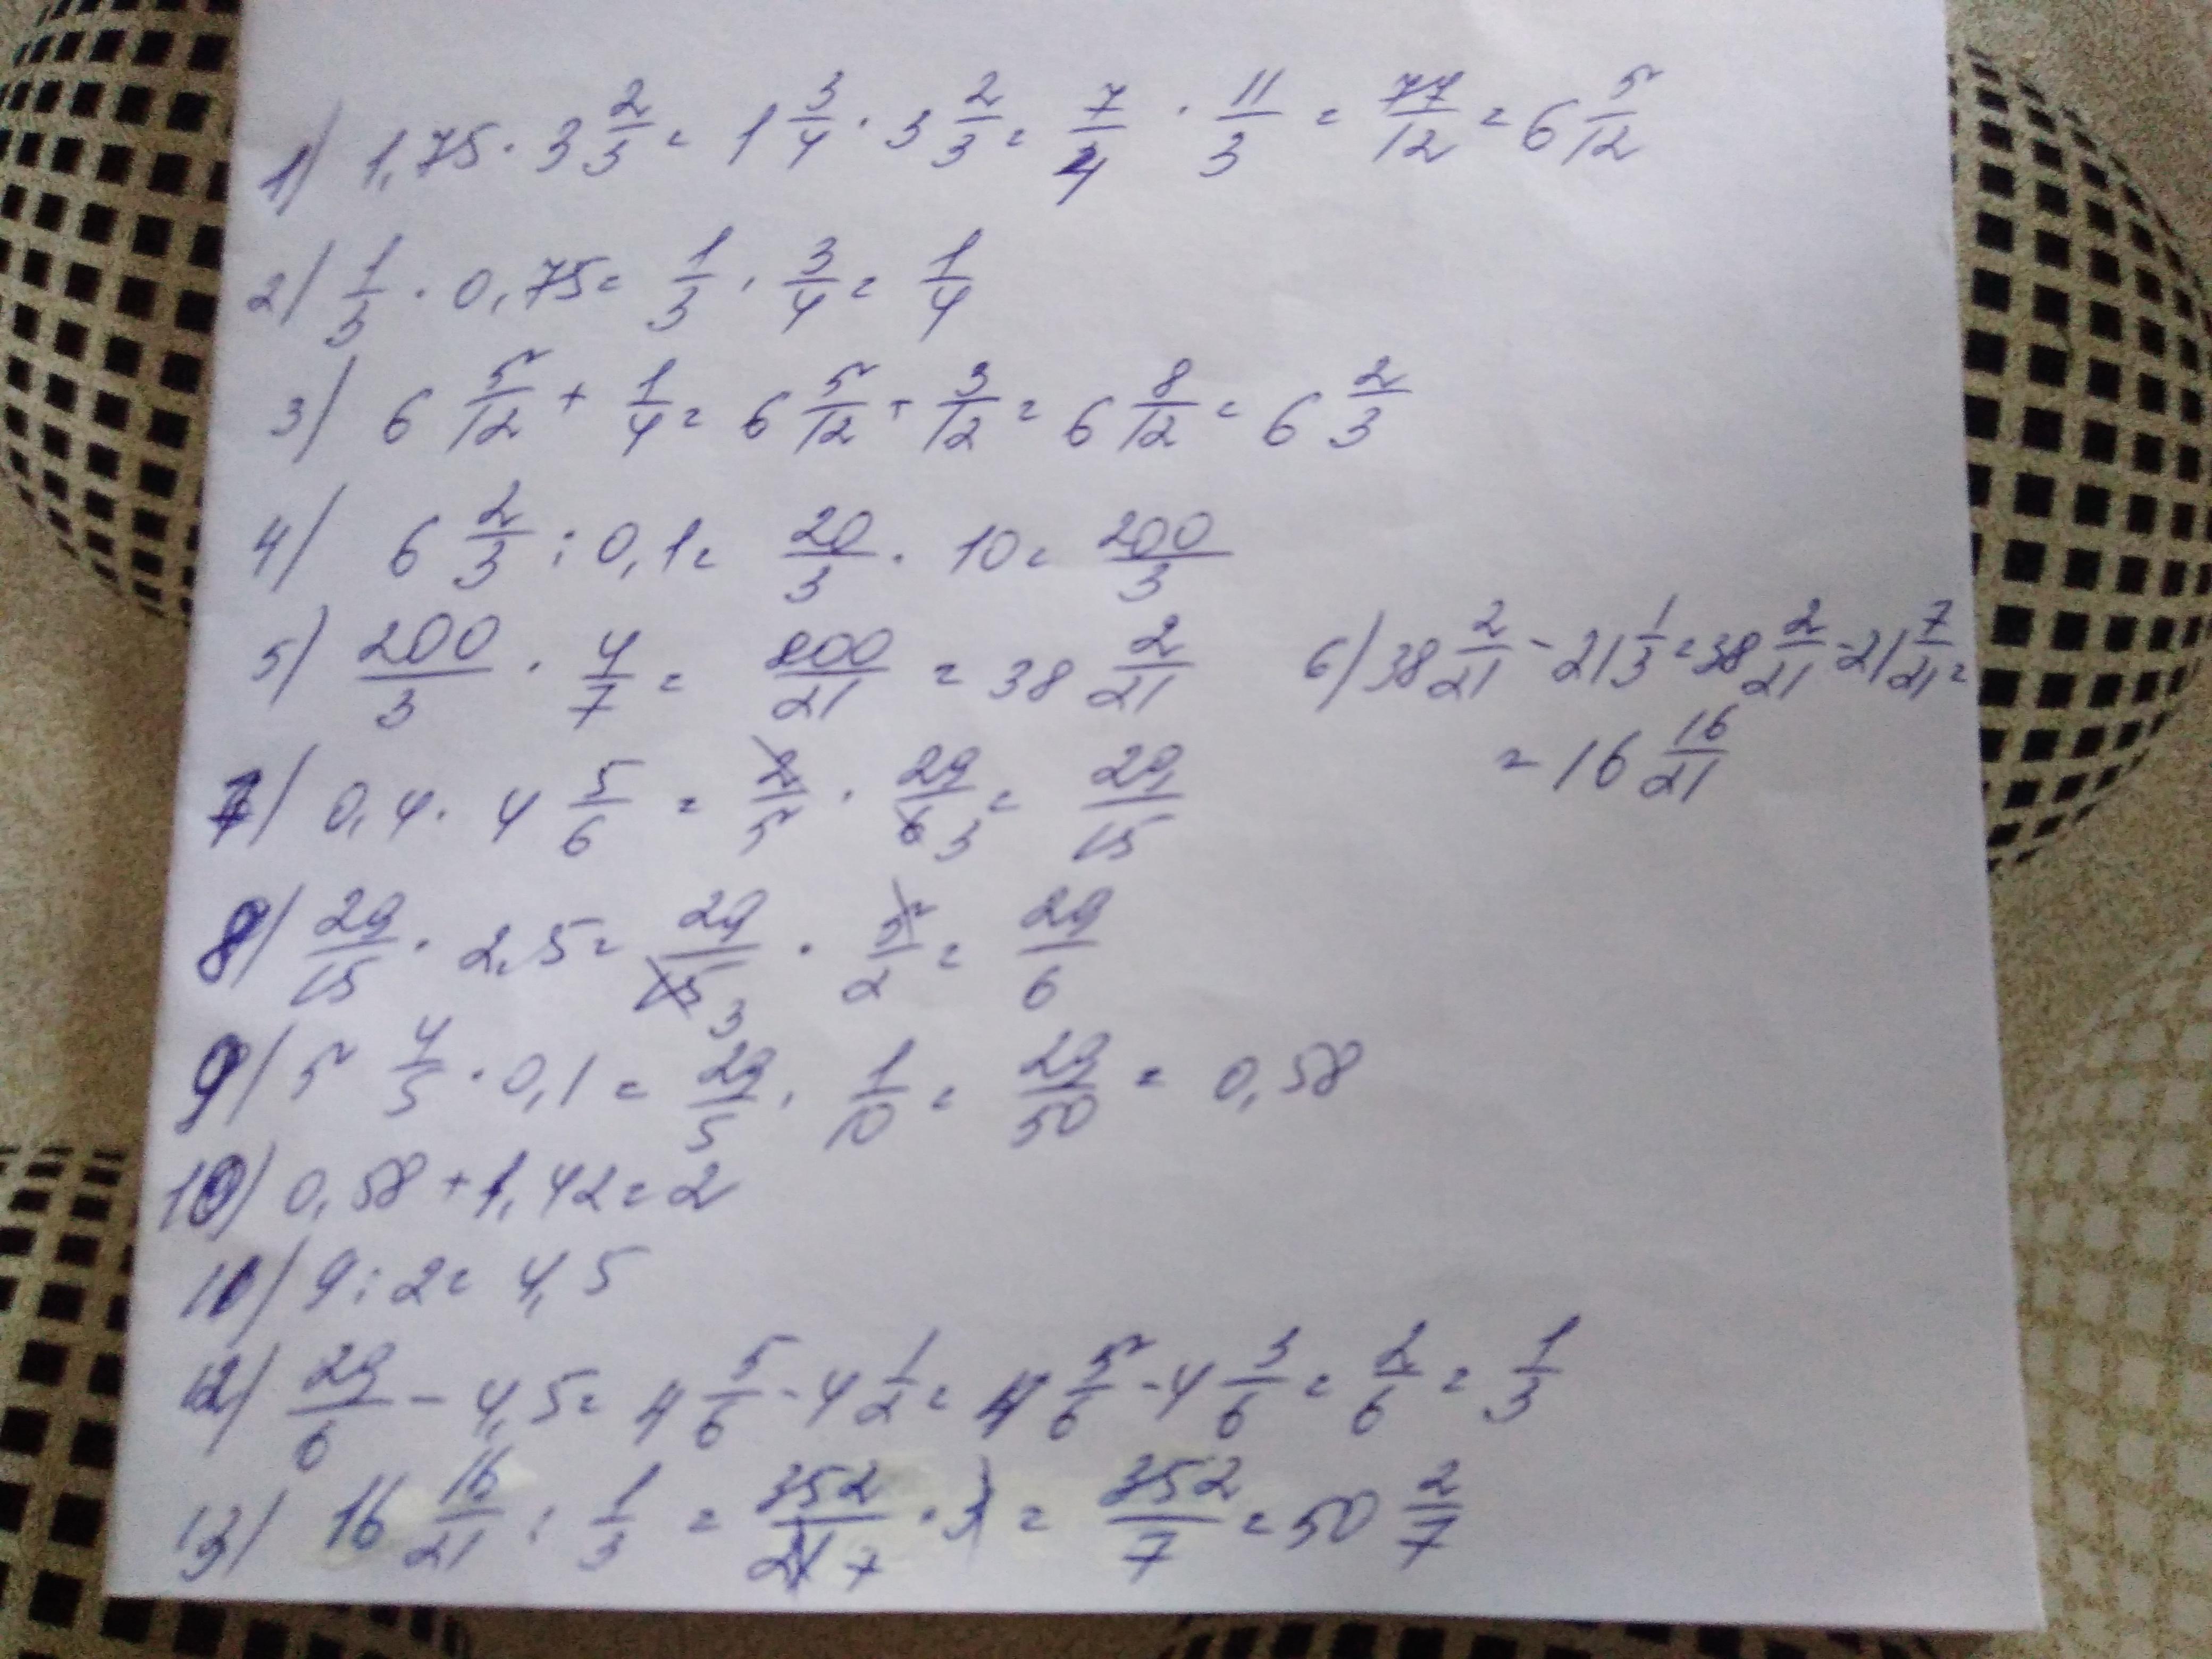 1) 1,75 · 3 2/3 = 1 3/4 · 3 2/3 = 7/4 · 11/3 = 77/12 = 6 5/12
2) 1/3 · 0,75 = 1/3 · 3/4 = 1/4
3) 6 5/12 + 1/4 = 6 5/12 + 3/12 = 6 8/12 = 6 2/3
4) 6 2/3 : 0,1 = 20/3 · 10 = 200/3
5) 200/3 · 4/7 = 800/21 = 38 2/21
6) 38 2/21 - 21 1/3 = 38 2/21 - 21 7/21 =
= 16 16/21
7) 0,4 · 4 5/6 = 2/5 · 29/6 3 = 29/15
8) 29/15 · 2,5 = 29/15 3 · 5/2 = 29/6
9) 5 4/5 · 0,1 = 29/5 · 1/10 = 29/50 = 0,58
10) 0,58 + 1,42 = 2
11) 9 : 2 = 4,5
12) 29/6 - 4,5 = 4 5/6 - 4 1/2 = 4 5/6 - 4 3/6 = 2/6 = 1/3
13) 16 16/21 : 1/3 = 352/21 7 · 3 = 352/7 = 50 2/7